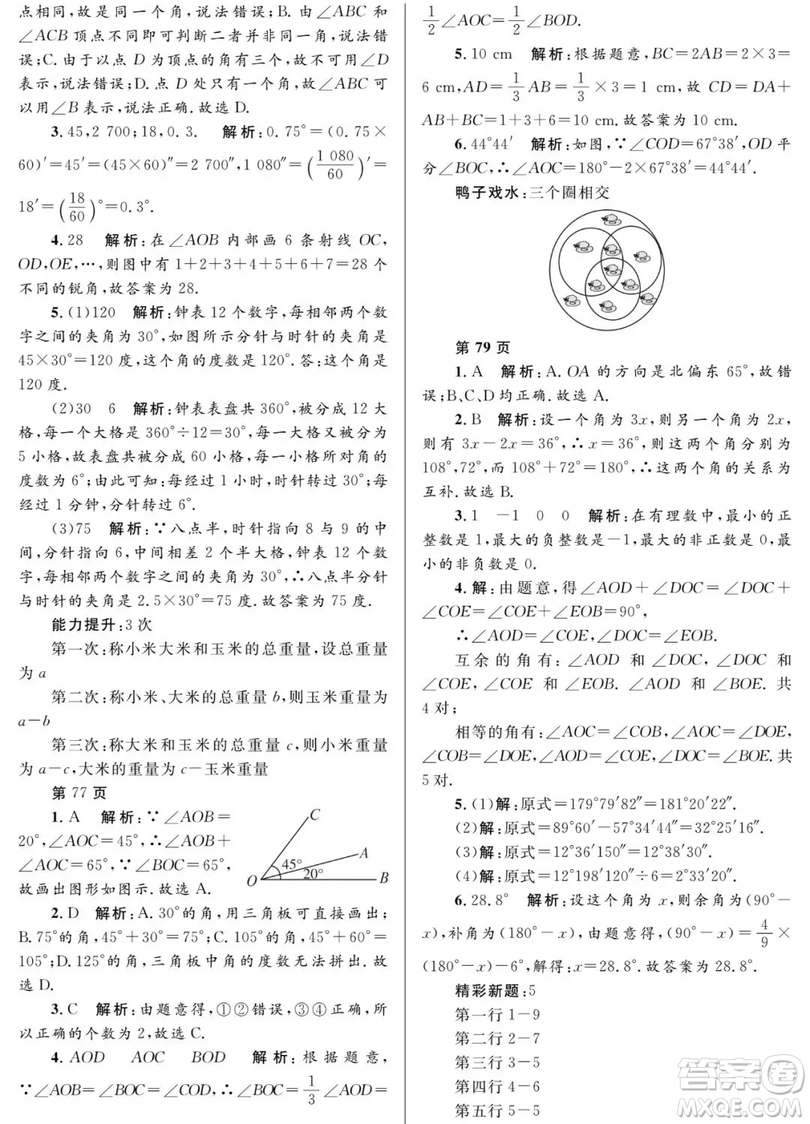 点相同，故是同一个角，说法错误；B. 由于∠ABC 和
∠ACB 顶点不同即可判断二者并非同一角，说法错
误；C. 由于以点 D 为顶点的角有三个，故不可用∠D
表示，说法错误；D. 点 D 处只有一个角，故∠ABC 可
以用∠B 表示，说法正确. 故选 D.
3. 45，2 700；18，0. 3. 解析：0. 75°＝(0. 75×
60)′＝45′＝(45×60)″＝2 700″，1 080″＝(1 080/60)′＝
18′＝(18/60)°＝0. 3°.
4. 28 解析：在∠AOB 内部画 6 条射线 OC，
OD，OE，…，则图中有 1＋2＋3＋4＋5＋6＋7＝28 个
不同的锐角，故答案为 28.
5. (1)120 解析：钟表 12 个数字，每相邻两个数
字之间的夹角为 30°，如图所示分针与时针的夹角是
45×30°＝120°，故这个角的度数是 120°. 答：这个角是
120 度.
(2)30 6 解析：钟表表盘共 360°，被分成 12 大
格，每大格的度数是 360°÷12＝30°；每个大格被分为
5 小格，故表盘共被分成 60 小格，每小格所对角的
度数为 6°；由此可知：时针转动一小时，转过 30°；分
针经过 1 分钟，分针转过 6°.
(3)75 解析：∵八点半，时针指向 8 与 9 的中
间，分针指向 6，钟表 12 个数字，每相邻数字是一大
格，相邻两个数字之间的夹角为 30°，∴八点半分针
与时针的夹角是 2. 5×30°＝75°. 故答案为 75 度.
能力提升：3 次
第一次：称小米大米和玉米的总重量，设总重量
为 a
第二次：称小米、大米的总重量 b，则玉米重量为
a－b
第三次：称大米和玉米的总重量 c，则小米的重量
为 a－c，大米的重量为 c－(a－b)＝b＋c－a
第 77 页
1. A 解析：∵∠AOB＝
20°，∠AOC＝45°，∴∠AOB＋
∠AOC＝65°，∵∠BOC＝65°，
故画出图形如图示. 故选 A.
C
A
45°
20°
O
B
2. D 解析：A. 30°的角，用三角板可直接画出；
B. 75°的角，45°＋30°＝75°；C. 105°的角，45°＋60°＝
105°；D. 125°的角，三角板中角的度数无法拼出. 故
选 D.
3. C 解析：由题意得，①②错误，③④正确，所
以正确的个数为 2，故选 C.
4. AOD AOC BOD 解析：根据题意，
∵∠AOB＝∠BOC＝∠COD，∴∠BOC＝1/3∠AOD＝
1/2∠AOC＝1/2∠BOD.
5. 10 cm 解析：根据题意，BC＝2AB＝2×3＝
6 cm，AD＝1/3 AB＝1/3×3＝1 cm，故 CD＝DA＋
AB＋BC＝1＋3＋6＝10 cm. 故答案为 10 cm.
6. 44°44′ 解析：如图，∵∠COD＝67°38′，OD 平
分∠BOC，∴∠AOC＝180°－2×67°38′＝44°44′.
鸭子戏水：三个圈相交
第 79 页
1. A 解析：A. OA 的方向是北偏东 65°，故错
误；B、C、D 均正确. 故选 A.
2. B 解析：设一个角为 3x，则另一个角为 2x，
则有 3x－2x＝36°，∴x＝36°，则这两个角分别为
108°，72°，而 108°＋72°＝180°，∴这两个角的关系为
互补. 故选 B.
3. 1 －1 0 0 解析：在有理数中，最小的正
整数是 1，最大的负整数是－1，最大的非正数是 0，最
小的非负数是 0.
4. 解：由题意，得∠AOD＋∠DOC＝∠DOC＋
∠COE＝∠COE＋∠EOB＝90°，
∴∠AOD＝∠COE，∠DOC＝∠EOB.
互余的角有：∠AOD 和∠DOC，∠DOC 和
∠COE，∠COE 和∠BOE，∠AOD 和∠BOE. 共
4 对；
相等的角有：∠AOC＝∠COB，∠AOC＝∠DOE，
∠COB＝∠DOE，∠AOD＝∠COE，∠DOC＝∠BOE. 共
5 对.
5. (1)解：原式＝179°79′82″＝181°20′22″.
(2)解：原式＝89°60′－51°37′＝38°23′.
(3)解：原式＝12°36′150″＝12°38′30″.
(4)解：原式＝12°198′120″÷6＝2°33′20″.
6. 28. 8° 解析：设这个角为 x，则余角为(90°－
x)，补角为(180°－x)，由题意得，(90°－x)＝4/9×
(180°－x)－6°，解得：x＝28. 8°. 故答案为 28. 8°.
精彩新题：5
第一行 1－9
第二行 2－7
第三行 3－5
第四行 4－6
第五行 5－5
答案圈